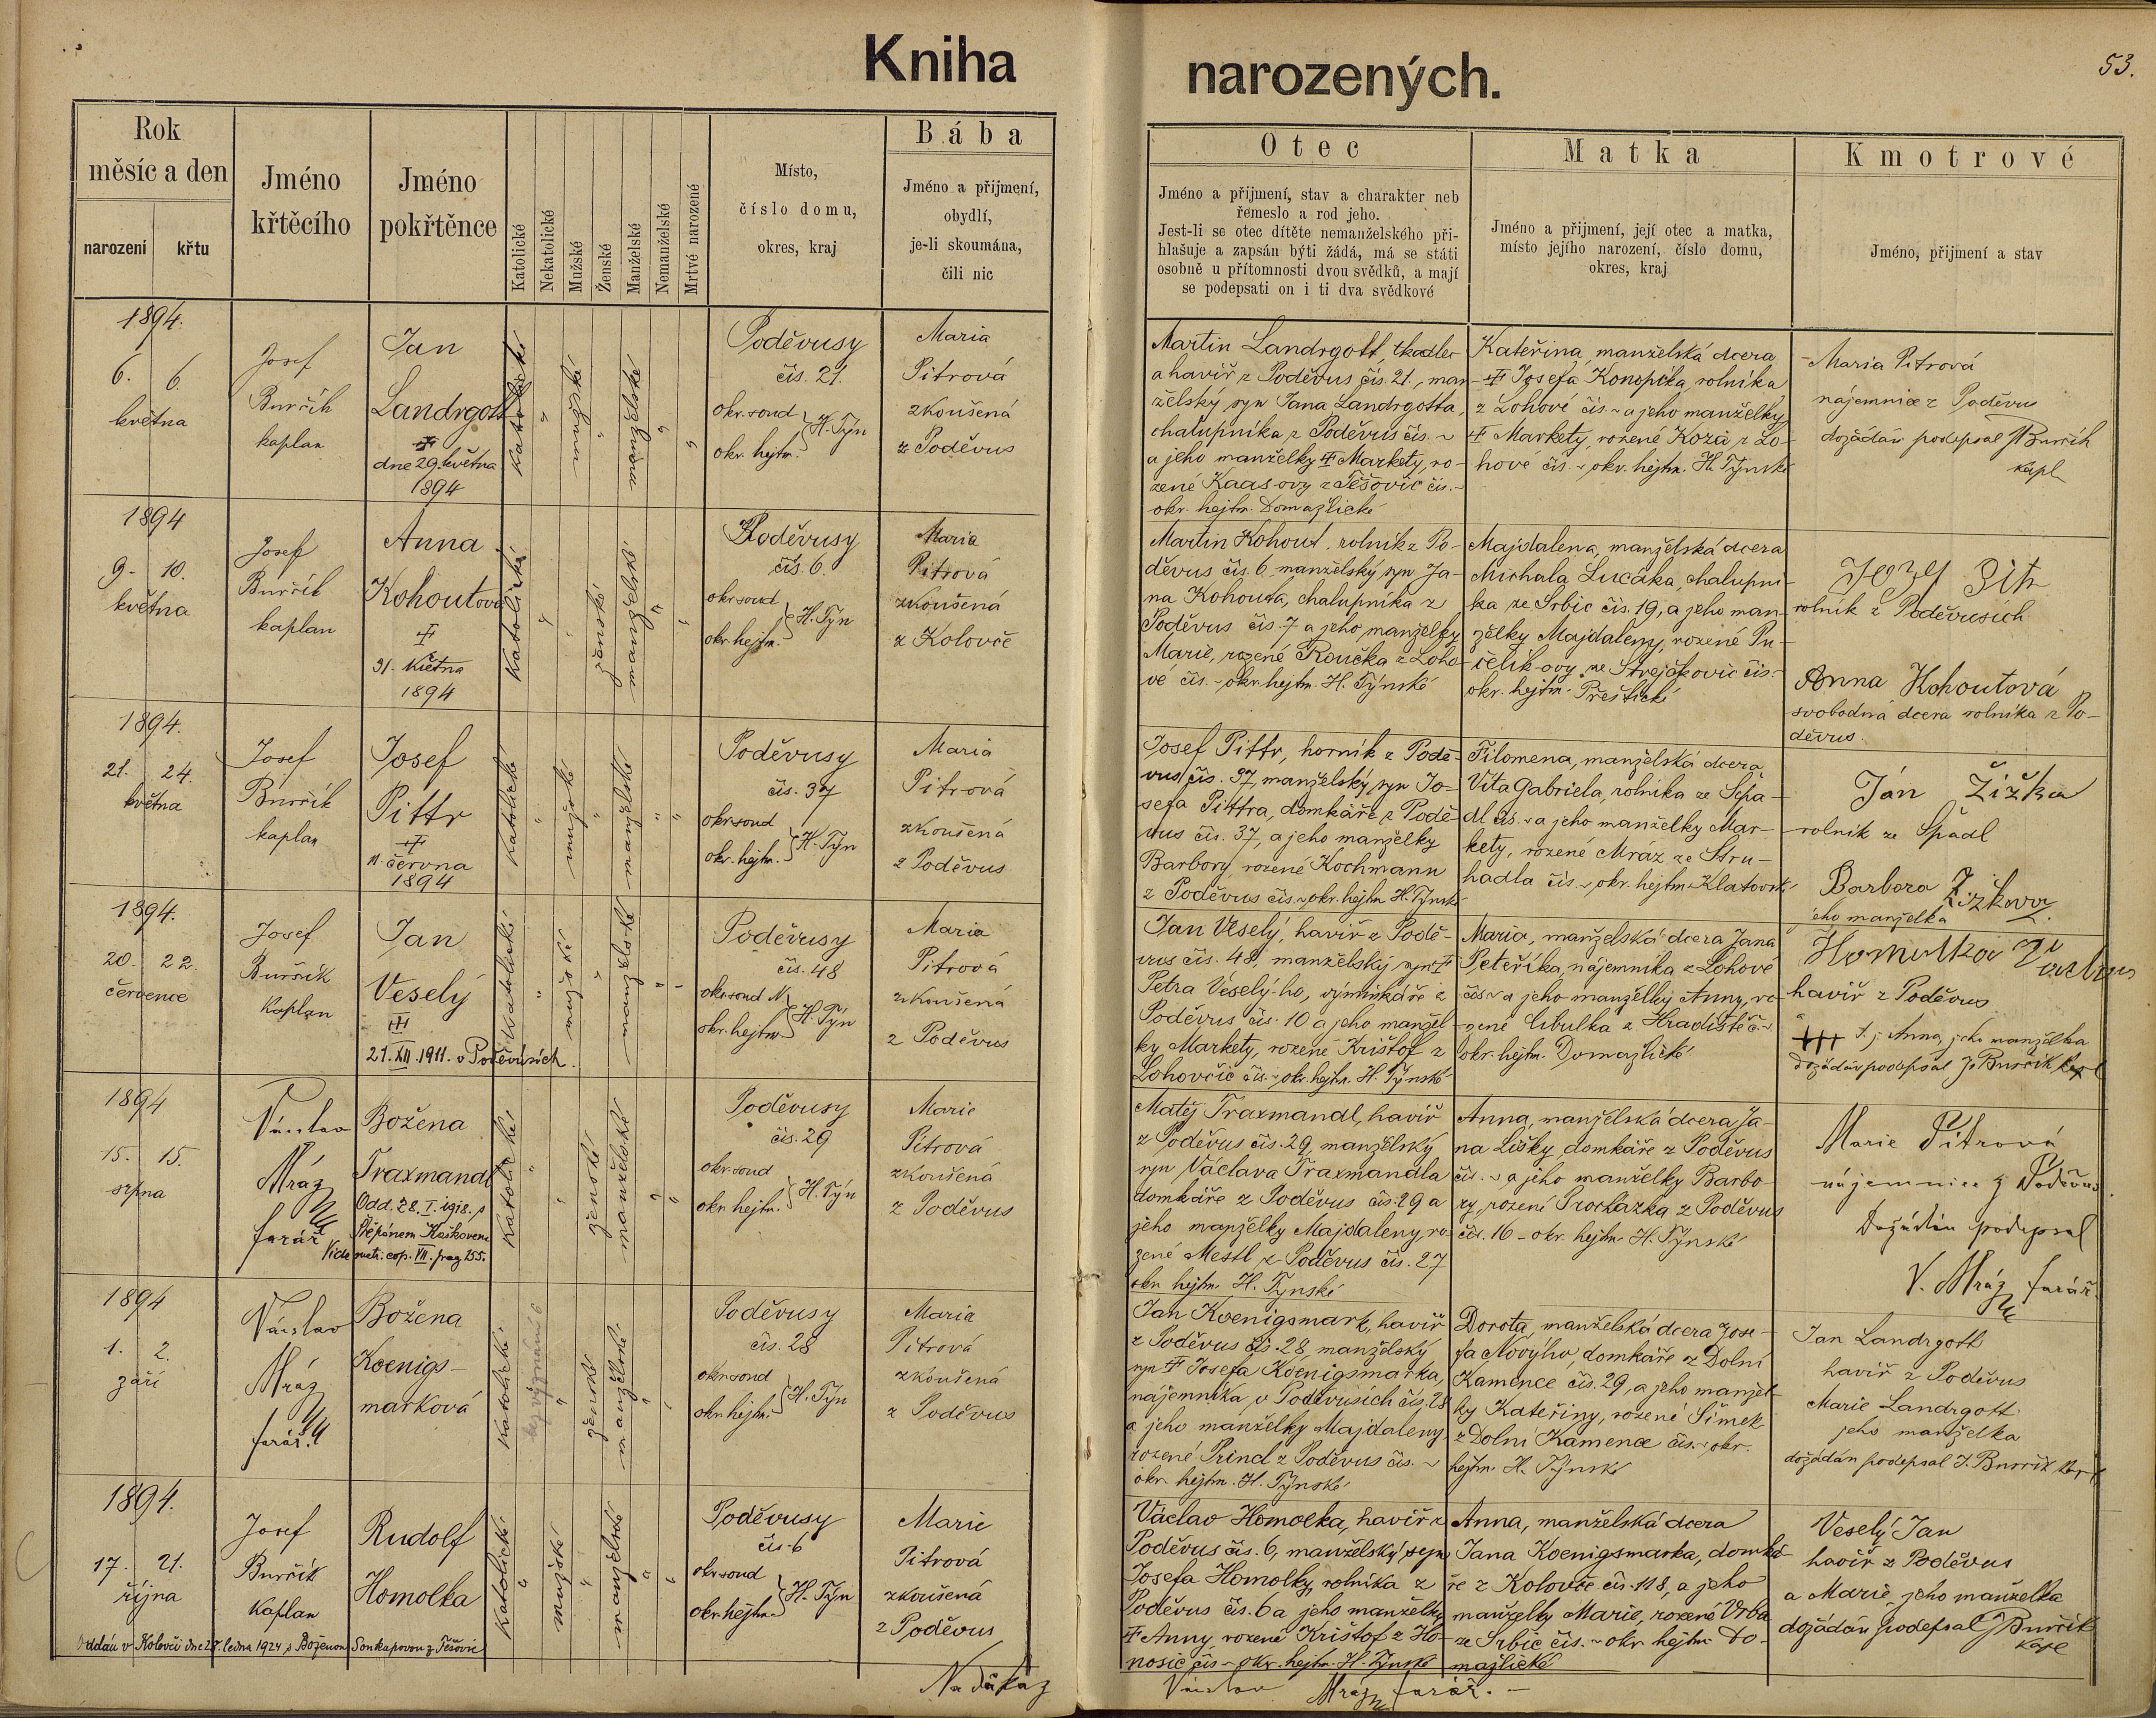 Kniha narozených.
53.
Rok
měsíc a den
narození
křtu
Jméno
křtěcího
Jméno
pokřtěnce
Katolické
Nekatolické
Mužské
Ženské
Manželské
Nemanželské
Mrtvě narozené
Místo,
číslo domu,
okres, kraj
Bába
Jméno a příjmení,
obydlí,
je-li skoumána,
čili nic
Otec
Jméno a příjmení, stav a charakter neb
řemeslo a rod jeho.
Jest-li se otec dítěte nemanželského při-
hlašuje a zapsán býti žádá, má se státi
osobně u přítomnosti dvou svědků, a mají
se podepsati on i ti dva svědkové
Matka
Jméno a příjmení, její otec a matka,
místo jejího narození, číslo domu,
okres, kraj
Kmotrové
Jméno, příjmení a stav
1894.
6. 6.
května
Josef
Burčík
kaplan
Jan
Landrgott
dne 29. května
1894
katolické
mužské
manželské
Poděvusy
čís. 21.
okr. soud
okr. hejtm.
H. Týn
Maria
Pitrová
zkoušená
z Poděvus
Martin Landrgott, tkadlec
a havíř z Poděvus čís. 21., man-
želský syn Jana Landrgotta,
chalupníka z Poděvus čís. ~
a jeho manželky Markety, ro-
zené Kaas-ovy z Těšovic čís. ~
okr. hejtm. Domažlické
Kateřina, manželská dcera
Josefa Konopíka, rolníka
z Lohové čís. ~ a jeho manželky
Markety, rozené Koza z Lo-
hové čís. ~, okr. hejtm. H. Týnské
Maria Pitrová
nájemnice z Poděvus
dožádán podepsal J Burčík
kapl
1894
9. 10.
května
Josef
Burčík
kaplan
Anna
Kohoutová
31. května
1894
katolické
ženské
manželské
Poděvusy
čís. 6.
okr. soud
okr. hejtm.
H. Týn
Maria
Pitrová
zkoušená
z Kolovče
Martin Kohout, rolník z Po-
děvus čís. 6, manželský syn Ja-
na Kohouta, chalupníka z
Poděvus čís. 7 a jeho manželky
Marie, rozené Roučka z Loho-
vé čís. ~ okr. hejtm. H. Týnské
Majdalena, manželská dcera
Michala Lucáka, chalupní-
ka ze Srbic čís. 19, a jeho man-
želky Majdaleny, rozené Pu-
čelík-ovy ze Strejčkovic čís. ~
okr. hejtm. Přeštické
rolník z Poděvusích
Anna Kohoutová
svobodná dcera rolníka z Po-
děvus.
1894.
21. 24.
května
Josef
Burčík
kaplan
Josef
Pittr
11. června
1894
katolické
mužské
manželské
Poděvusy
čís. 37
okr. soud
okr. hejtm.
H. Týn
Maria
Pitrová
zkoušená
z Poděvus
Josef Pittr, horník z Podě-
vus čís. 37, manželský syn Jo-
sefa Pittra, domkáře z Podě-
vus čís. 37, a jeho manželky
Barbory rozené Kochmann
z Poděvus čís. ~ okr. hejtm H. Týnské
Filomena, manželská dcera
Víta Gabriela, rolníka ze Špá-
dl čís. ~ a jeho manželky Mar-
kety, rozené Mráz ze Stru-
hadla čís. ~, okr. hejtm. Klatovské
Ján Žižka
rolník ze Špádl
Barbora Žižková
jeho manželka
1894.
20. 22.
července
Josef
Burčík
Kaplan
Jan
Veselý
21. XII. 1911. v Poděvusích.
katolické
mužské
manželské
Poděvusy
čís. 48
okr. soud
okr. hejtm.
H. Týn
Maria
Pitrová
zkoušená
z Poděvus
Jan Veselý, havíř z Podě-
vus čís. 48, manželský syn
Petra Veselý-ho, výminkáře z
Poděvus čís. 10 a jeho manžel-
ky Markety, rozené Krištof z
Lohovčic čís. ~, okr. hejtm. H. Týnské
Maria, manželská dcera Jana
Peteříka, nájemníka z Lohové
čís. ~ a jeho manželky Anny, ro-
zené Cibulka z Hradiště č. ~
okr. hejtm. Domažlické
Homolka
havíř z Poděvus
+++ t. j. Anna, jeho manželka
dožádán podepsal J Burčík kapl
1894
15. 15.
srpna
Václav
Mráz
farář
Božena
Traxmandl
Odd. 28. I. 1918. s
Štěpánem Kaškovem
Vide matr. cop. VII. pag 255.
katolické
ženské
manželské
Poděvusy
čís. 29
okr. soud
okr. hejtm.
H. Týn
Marie
Pitrová
zkoušená
z Poděvus
Matěj Traxmandl, havíř
z Poděvus čís. 29, manželský
syn Václava Traxmandla
domkáře z Poděvus čís. 29 a
jeho manželky Majdaleny, ro-
zené Mestl z Poděvus čís. 27
okr. hejtm. H. Týnské
Anna, manželská dcera Ja-
na Lišky, domkáře z Poděvus
čís. ~ a jeho manželky Barbo-
ry, rozené Procházka z Poděvus
čís. 16 – okr. hejtm. H. Týnské
Marie Pitrová
nájemnice z Poděvus.
Dožádán podepsal
V. Mráz farář.
1894
1. 2.
září
Václav
Mráz
farář.
Božena
Koenigs-
marková
katolické
bez vyznání
ženské
manželské
Poděvusy
čís. 28
okr. soud
okr. hejtm.
H. Týn
Maria
Pitrová
zkoušená
z Poděvus
Jan Koenigsmark, havíř
z Poděvus čís. 28, manželský
syn Josefa Koenigsmarka,
nájemníka v Poděvusích čís. 28
a jeho manželky Majdaleny,
rozené Prind z Poděvus čís. ~
okr. hejtm. H. Týnské
Dorota, manželská dcera Jose-
fa Nového, domkáře z Dolní
Kamence čís. 29, a jeho manžel-
ky Kateřiny, rozené Šimek
z Dolní Kamence čís. ~, okr.
hejtm. H. Týnské
Jan Landrgott
havíř z Poděvus
Marie Landrgott
jeho manželka
dožádán podepsal J. Burčík kapl
1894.
17. 21.
října
Josef
Burčík
Kaplan
Rudolf
Homolka
Oddán v Kolovči dne 27. ledna 1924 s Boženou Sonkupovou z Těšovic
katolické
mužské
manželské
Poděvusy
čís. 6
okr. soud
okr. hejtm.
H. Týn
Marie
Pitrová
zkoušená
z Poděvus
Václav Homolka, havíř z
Poděvus čís. 6, manželský syn
Josefa Homolky, rolníka z
Poděvus čís. 6 a jeho manželky
Anny, rozené Krištof z Ho-
nosic čís ~ okr. hejtm. H. Týnské
Anna, manželská dcera
Jana Koenigsmarka, domká-
ře z Kolovče čís. 118, a jeho
manželky Marie, rozené Vrba
ze Srbic čís. ~ okr. hejtm. Do-
mažlické
Veselý Jan
havíř z Poděvus
a Marie, jeho manželka
dožádán podepsal J Burčík
kapl
Na důkaz
Václav Mráz farář. —